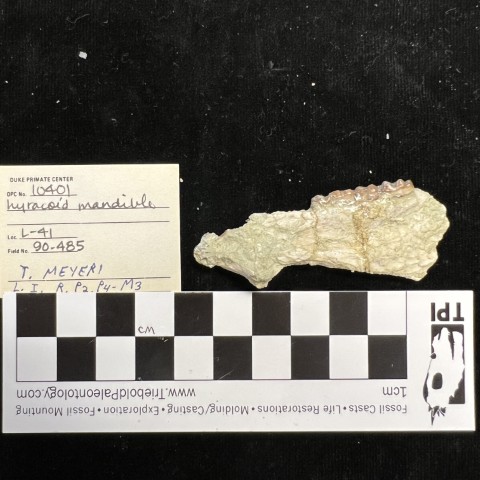 DUKE PRIMATE CENTER
DPC No. 10401
hyracoid mandible
Loc. L-41
Field No. 90-485
T. MEYERI
L. I, R. P2, P4-M3
TPI
CM
1cm
www.TrieboldPaleontology.com
Fossil Casts • Life Restorations • Molding/Casting • Exploration • Fossil Mounting